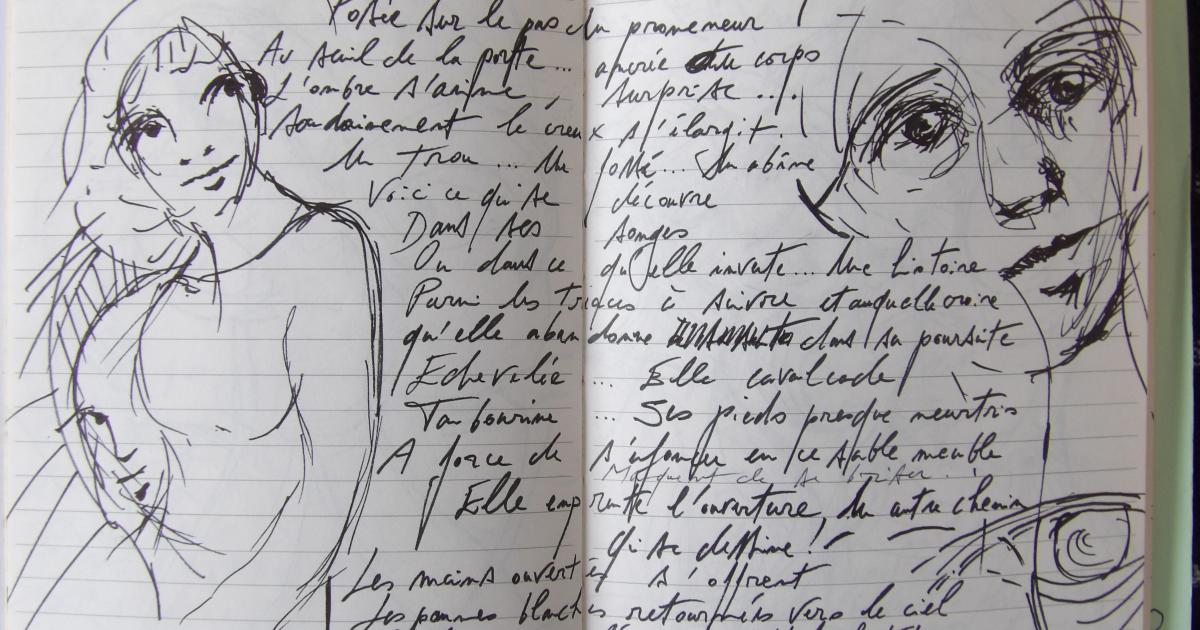 Postée sur le pas du promeneur !
Au seuil de la porte... apeurée corps
L'ombre s'anime, surprise...
Soudainement le creux s'élargit.
Un trou... Un fossé... Un abîme
Voici ce qui se découvre
Dans ses songes
Ou dans ce qu'elle invente... Une histoire
Parmi les traques à suivre et auquelle croire
qu'elle abandonne dans sa poursuite
Echevelée ... Elle cavalcade
Tambourine ... Ses pieds presque meurtris
A force de s'enfoncer en ce sable meuble
Manquent de se briser.
Elle emprunte l'ouverture, Un autre chemin
Qui se dessine !
Les mains ouvertes s'offrent
Les paumes blanches retournées vers le ciel